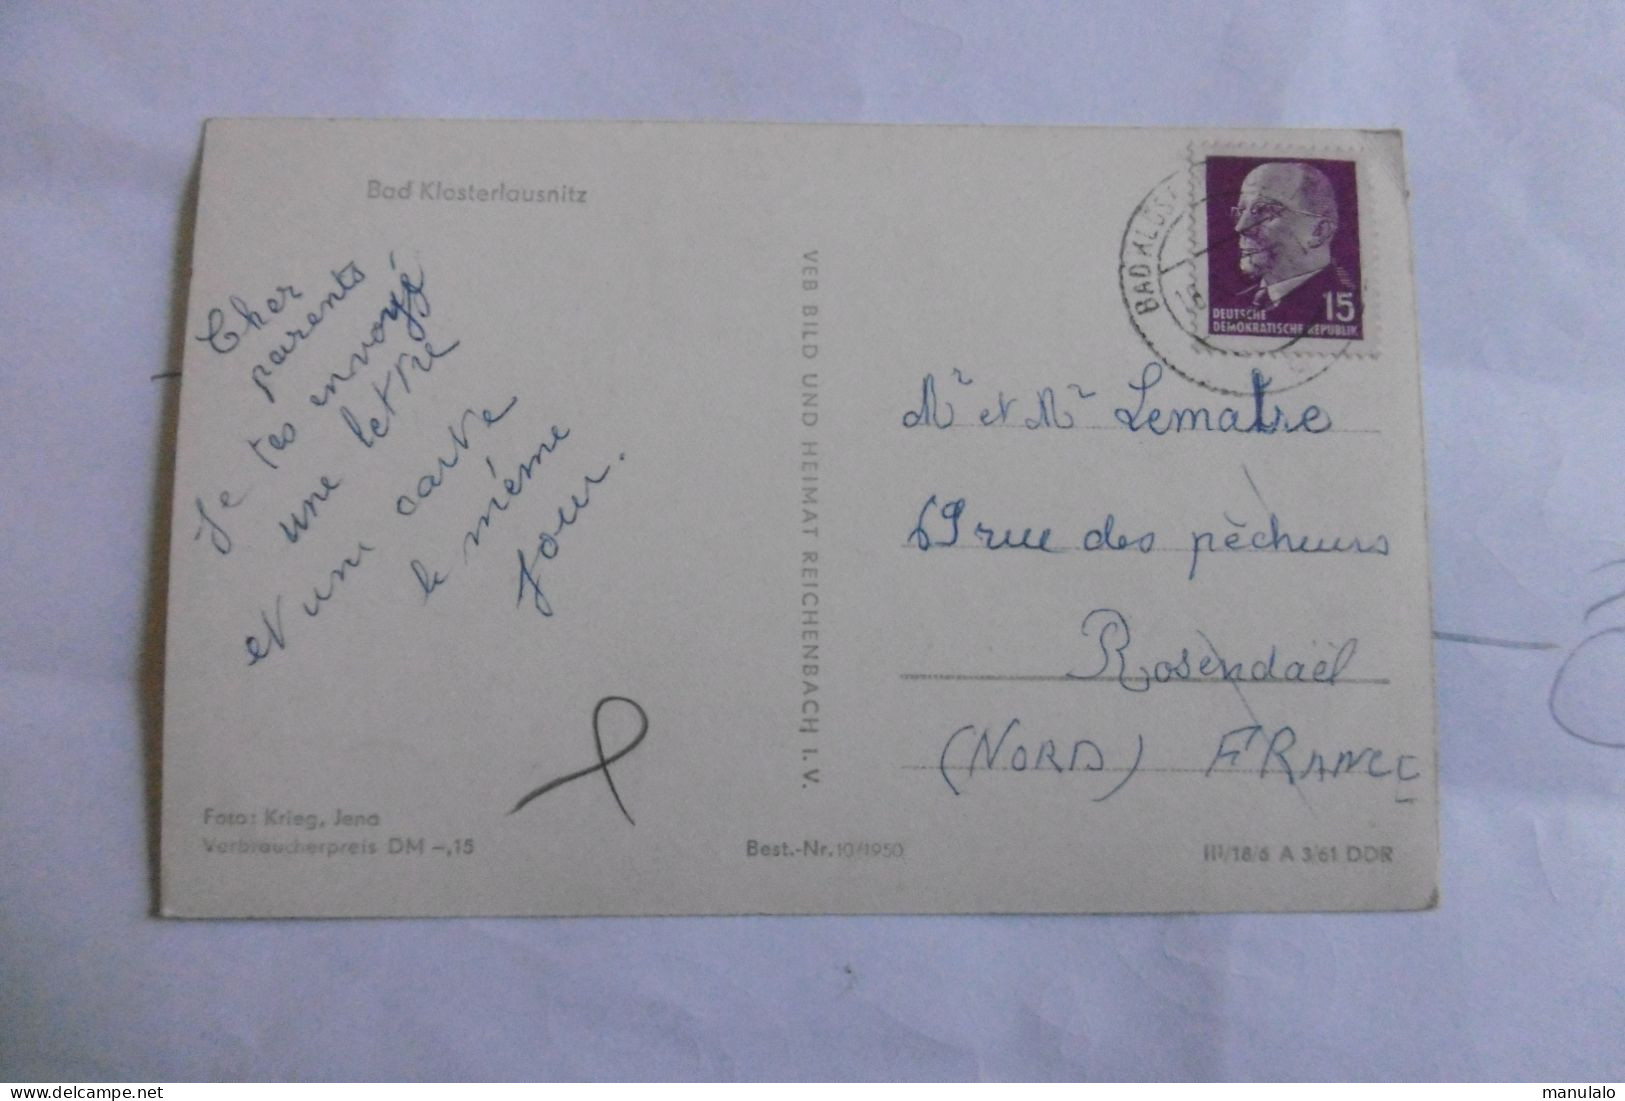 Bad Klosterlausnitz
Cher
parents
Je tes envoyé
une lettre
et une carte
le même
jour.
Foto: Krieg, Jena
Verbraucherpreis DM -,15
VEB BILD UND HEIMAT REICHENBACH I. V.
Best.-Nr. 10/1950
BAD KLOST
15
DEUTSCHE
DEMOKRATISCHE REPUBLIK
Mr et Mr Lematre
69 rue des pècheurs
Rosendaël
(NORD) FRANCE
III/18/6 A 3/61 DDR
delcampe.net
manulalo